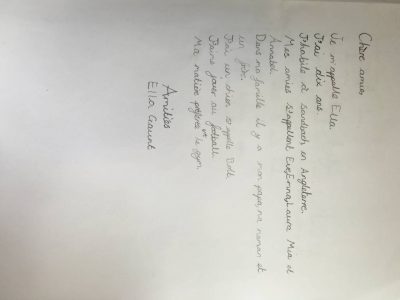 Chère amie
Je m'appelle Ella
J'ai dix ans.
J'habite à Sandbach en Angleterre.
Mes amies s'appellent Eve, Emma, Laura Mia et
Annabel.
Dans ma famille il y a mon papa, ma maman et
un
J'ai un chien s'appelle
J'aime jouer au football.
Ma matière préférée le gym.
Amitiés
Ella